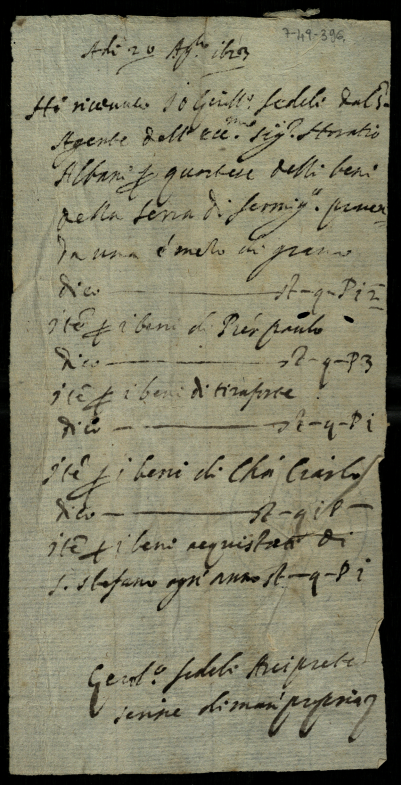 7-49-396
Adi 20 Agto 1623
Ho riceuuto Io Gerolo fedeli dal
Agente dell'Ecc.mo sigr Horatio
Albani p quartese delli beni
della serra di
da una e meza di grano
dico — st-q-P1
itē p i beni di Pier paulo
dico — st-q-P3
itē p i beni di tiraforte
dico — st-q-P1
itē p i beni di Chà
dico — st-q1P-
itē p i beni acquistati di
S. stefano ogni anno st-q-P1
Gerolo fedeli Arciprete
scrisse di man propria